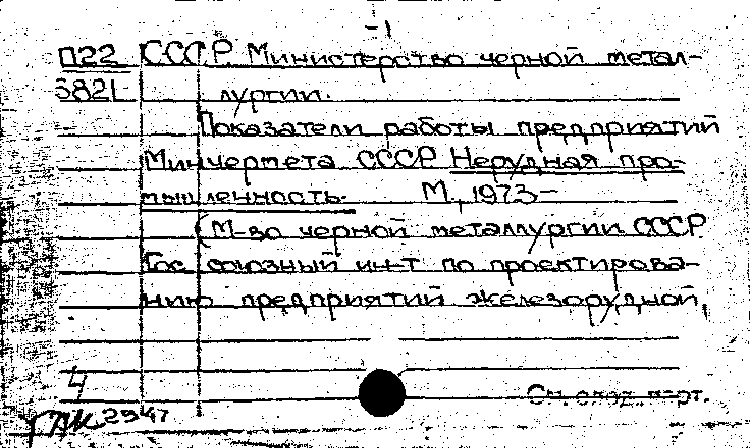 П22 СССР. Министерство черной метал-
6821 лургии.
Показатели работы предприятий
Минчермета СССР. Нерудная про-
мышленность. М., 1973-
(М-во черной металлургии СССР.
Гос. союзный ин-т по проектирова-
нию предприятий железорудной,
4
См. след. карт.
2947